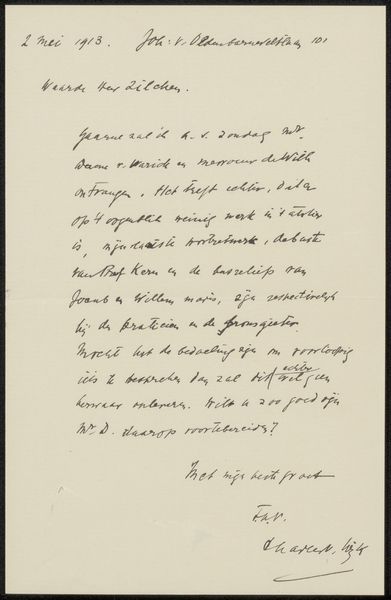 2 Mei 1913. Joh: v. Oldenbarneveltlaan 101
Waarde Heer Zilcken.
Gaarne zal ik a.s. Zondag Mr.
v. Warick en mevrouw de With
ontvangen. Het treft echter, dat er
op 't oogenblik weinig werk in 't atelier
is, mijn laatste portretwerk, de buste
van Prof Kern en de basreliefs van
Jacob en Willem Maris, zijn respectievelijk
bij den praticien en de bronsgieter.
Mocht het de bedoeling zijn om voorloopig
iets te bespreken dan zal dit echter wel geen
bezwaar opleveren. Wilt u zoo goed zijn
Mr. D. daarop voortebereiden?
Met mijn beste groet
T.à.v.
Charles v. Wijk